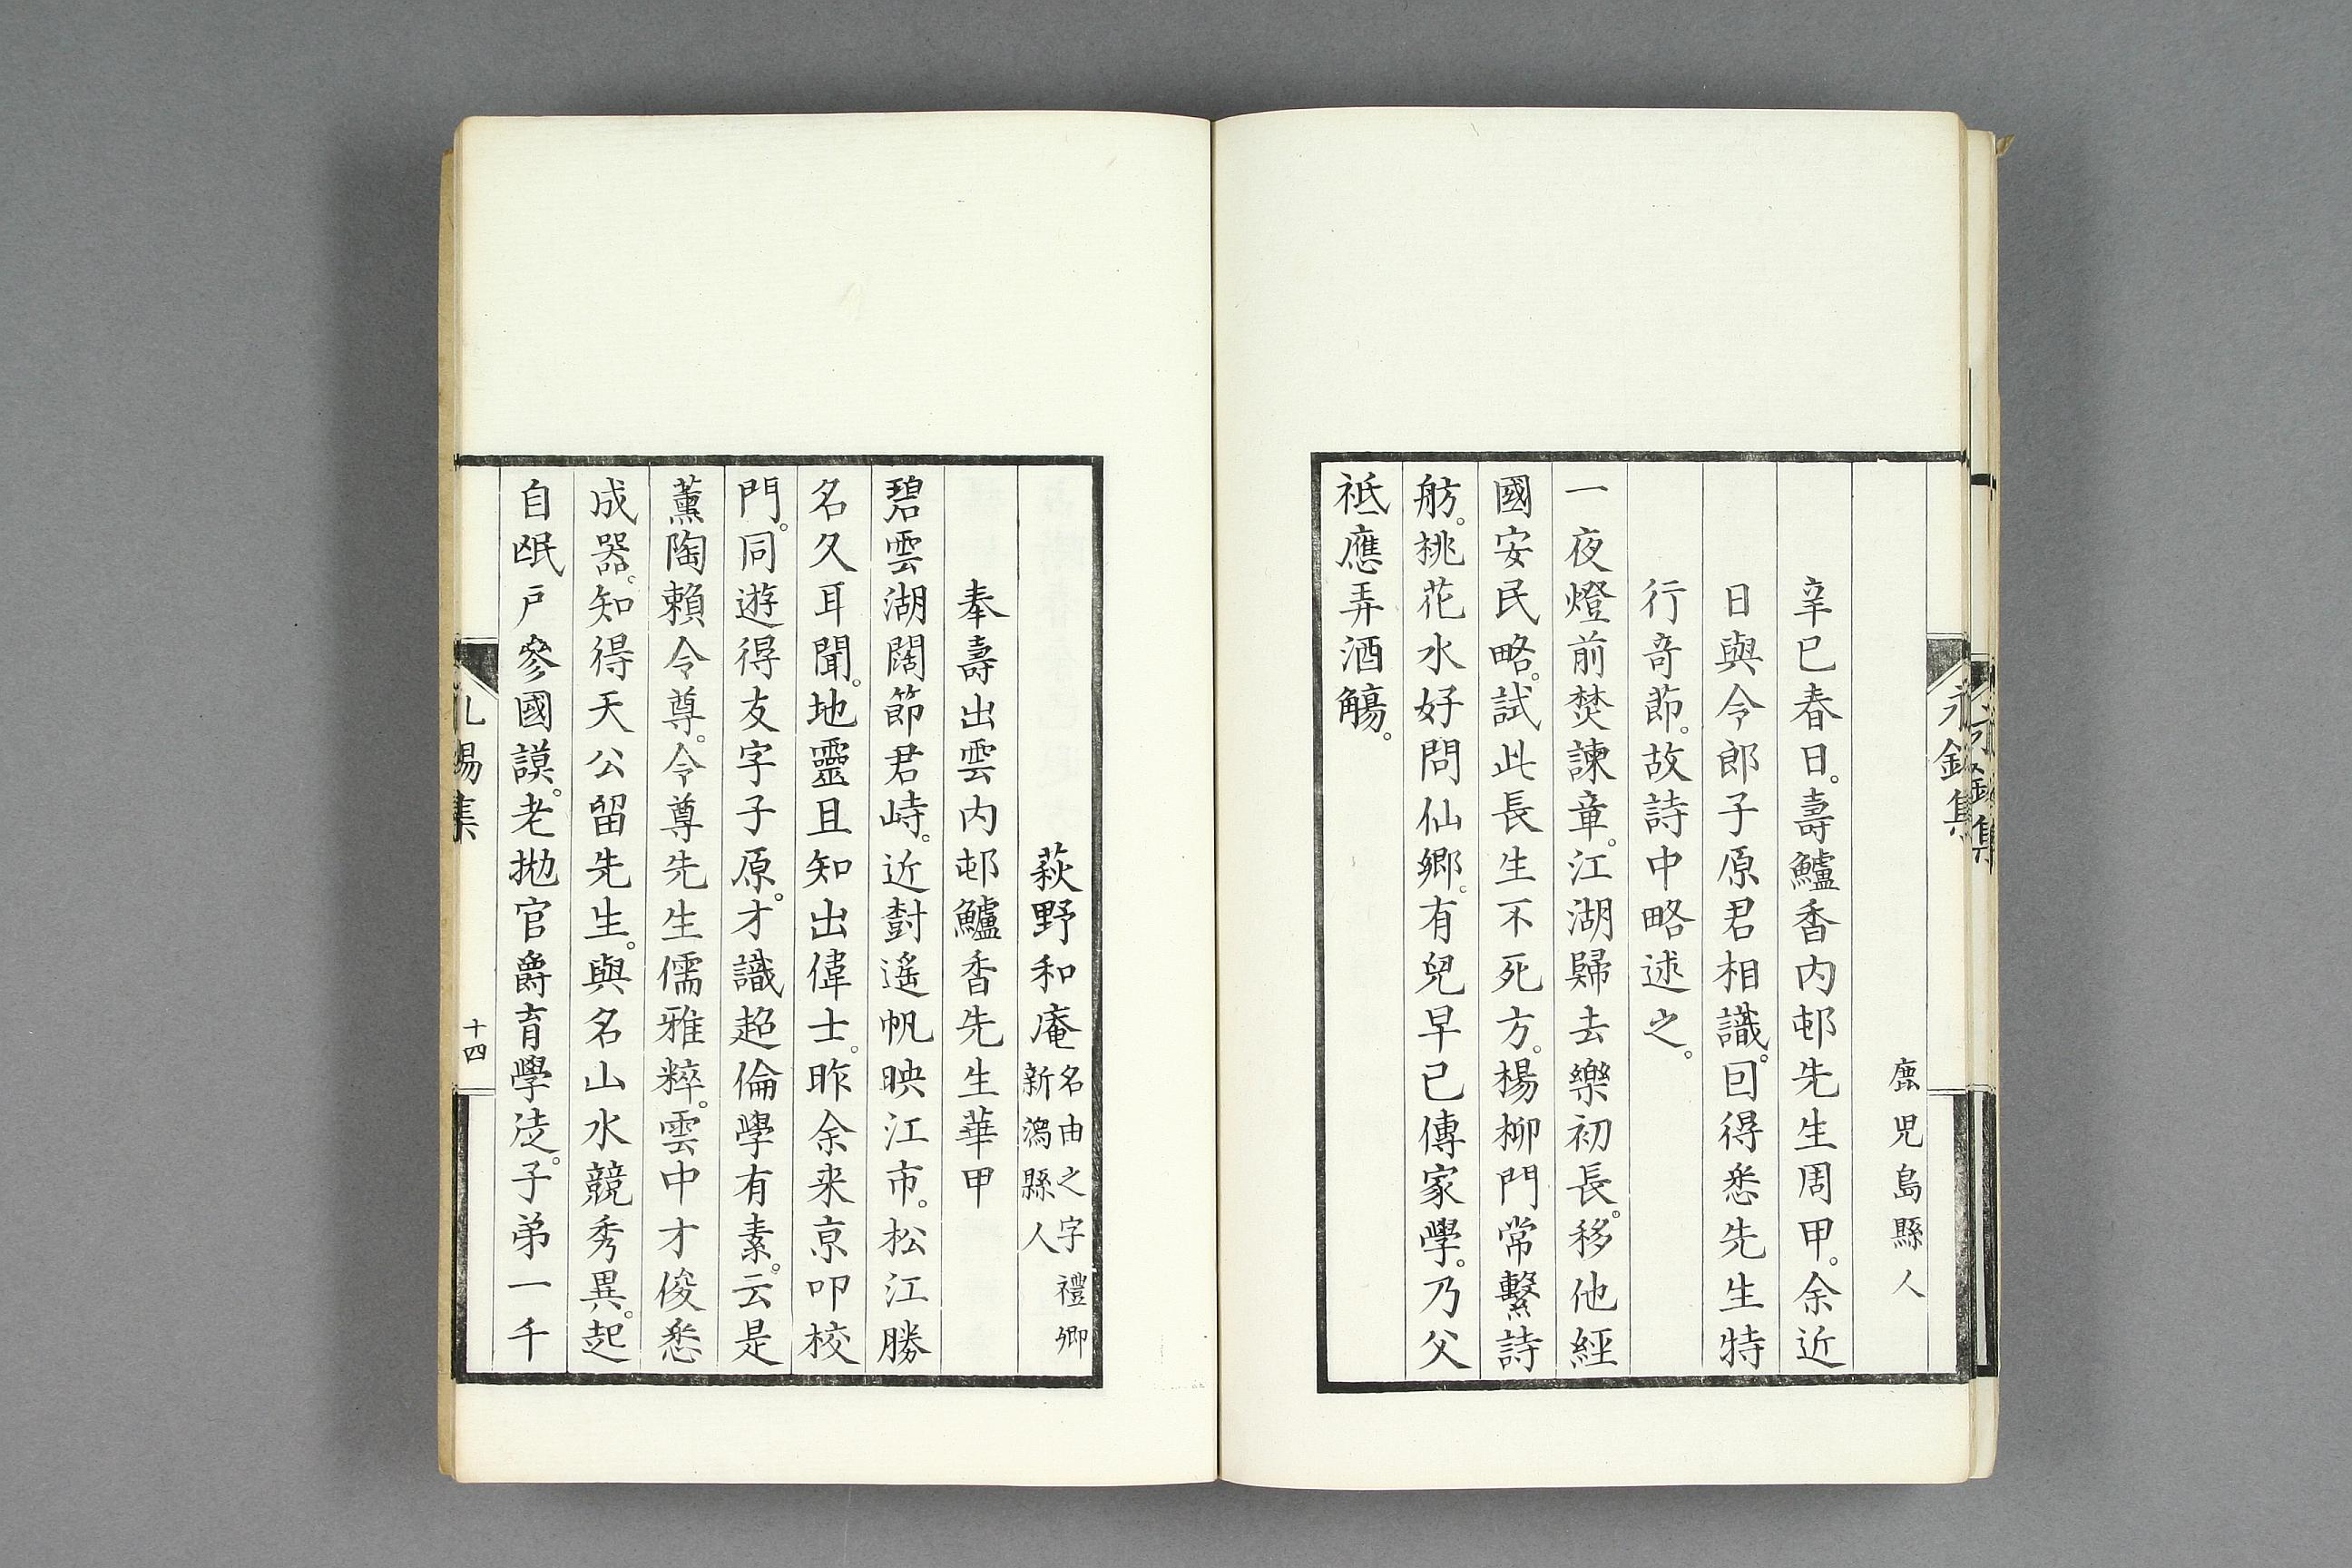 鹿児島縣人
辛巳春日。壽鱸香内邨先生周甲。余近
日與令郎子原君相識。囙得悉先生特
行竒節。故詩中略述之。
一夜燈前焚諫章。江湖歸去樂初長。移他經
國安民略。試此長生不死方。楊柳門常繫詩
舫。桃花水好問仙鄉。有兒早已傳家學。乃父
祗應弄酒觴。
萩野和庵
名由之字禮卿
新瀉縣人
奉壽出雲内邨鱸香先生華甲
碧雲湖闊節君峙。近對遙帆映江市。松江勝
名久耳聞。地靈且知出偉士。昨余来京叩校
門。同遊得友字子原。才識超倫學有素。云是
薫陶賴令尊。令尊先生儒雅粹。雲中才俊悉
成器。知得天公留先生。與名山水競秀異。起
自甿戶參國謨。老拋官爵育學徒。子弟一千
十四